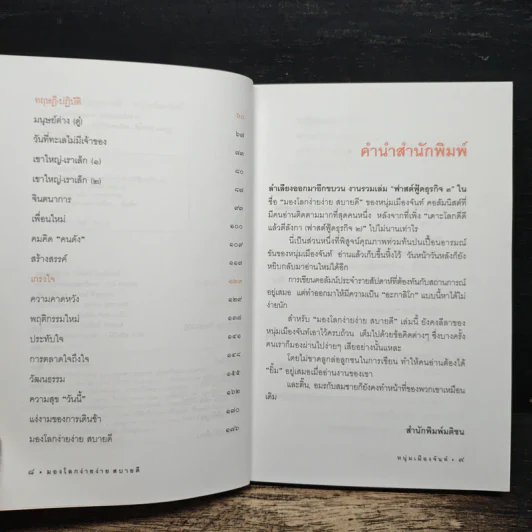 ทฤษฎี-ปฏิบัติ
มนุษย์ต่าง (คู่)
วันที่ทะเลไม่มีเจ้าของ
เขาใหญ่-เราเล็ก (๑)
เขาใหญ่-เราเล็ก (๒)
จินตนาการ
เพื่อนใหม่ ๑๐๐
คมคิด “คนดัง” ๑๐๙
สร้างสรรค์ ๑๑๙
เกรงใจ
ความคาดหวัง ๑๒๙
พฤติกรรมใหม่ ๑๓๕
ประทับใจ ๑๔๑
การตลาดใจถึงใจ ๑๔๘
วัฒนธรรม ๑๕๕
ความสุข “วันนี้” ๑๖๒
แง่งามของการเดินช้า ๑๗๐
มองโลกง่ายง่าย สบายดี ๑๗๖
๘ • มองโลกง่ายง่าย สบายดี
คำนำสำนักพิมพ์
ลำเลียงออกมาอีกขบวน งานรวมเล่ม “ฟาสต์ฟู้ดธุรกิจ ๓” ใน
ชื่อ “มองโลกง่ายง่าย สบายดี” ของหนุ่มเมืองจันท์ คอลัมนิสต์ที่
มีคนอ่านติดตามมากที่สุดคนหนึ่ง หลังจากที่เพิ่ง “เคาะโลกดีดี
แล้วตีลังกา (ฟาสต์ฟู้ดธุรกิจ ๒)” ไปไม่นานเท่าไร
นี่เป็นส่วนหนึ่งที่พิสูจน์คุณภาพท่วมท้นปนเปื้อนอารมณ์
ขันของหนุ่มเมืองจันท์ อ่านแล้วเก็บขึ้นหิ้งไว้ วันหน้าวันหลังก็ยัง
หยิบกลับมาอ่านใหม่ได้อีก
การเขียนคอลัมน์ประจำรายสัปดาห์ที่ต้องทันกับสถานการณ์
อยู่เสมอ แต่ทำออกมาให้มีความเป็น “อะกาลิโก” แบบนี้หาได้ไม่
ง่ายนัก
สำหรับ “มองโลกง่ายง่าย สบายดี” เล่มนี้ ยังคงลีลาของ
หนุ่มเมืองจันท์เขาไว้ครบถ้วน เต็มไปด้วยข้อคิดต่างๆ ซึ่งบางครั้ง
คนเราก็มองผ่านไปง่ายๆ เสียอย่างนั้นแหละ
โดยไม่ขาดลูกล่อลูกชนในการเขียน ทำให้คนอ่านต้องได้
“ยิ้ม” อยู่เสมอเมื่ออ่านงานของเขา
และตั้น, อมรกับสมชายก็ยังคงทำหน้าที่ของพวกเขาเหมือน
เดิม
สำนักพิมพ์มติชน
หนุ่มเมืองจันท์ • ๙